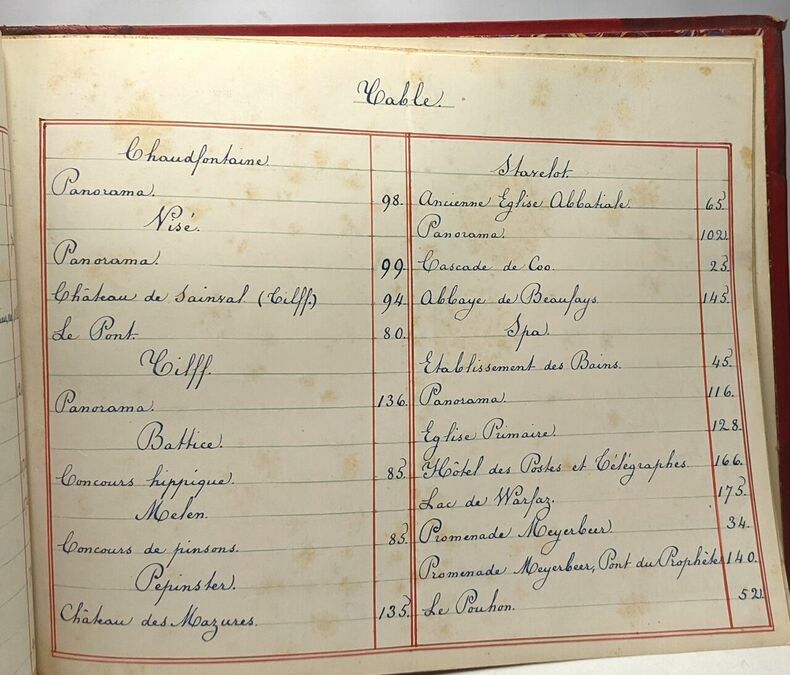 Table.
Chaudfontaine.
Panorama. 98.
Visé.
Panorama. 99.
Château de Sainval (Tilff.) 94.
Le Pont. 80.
Tilff.
Panorama. 136.
Battice.
Concours hippique. 85.
Melen.
Concours de pinsons. 85.
Pepinster.
Château des Mazures. 135.
Stavelot.
Ancienne Eglise Abbatiale. 65.
Panorama. 102.
Cascade de Coo. 25.
Abbaye de Beaufays. 145.
Spa.
Etablissement des Bains. 45.
Panorama. 116.
Eglise Primaire. 128.
Hôtel des Postes et Télégraphes. 166.
Lac de Warfaz. 175.
Promenade Meyerbeer. 34.
Promenade Meyerbeer, Pont du Prophète 140.
Le Pouhon. 52.